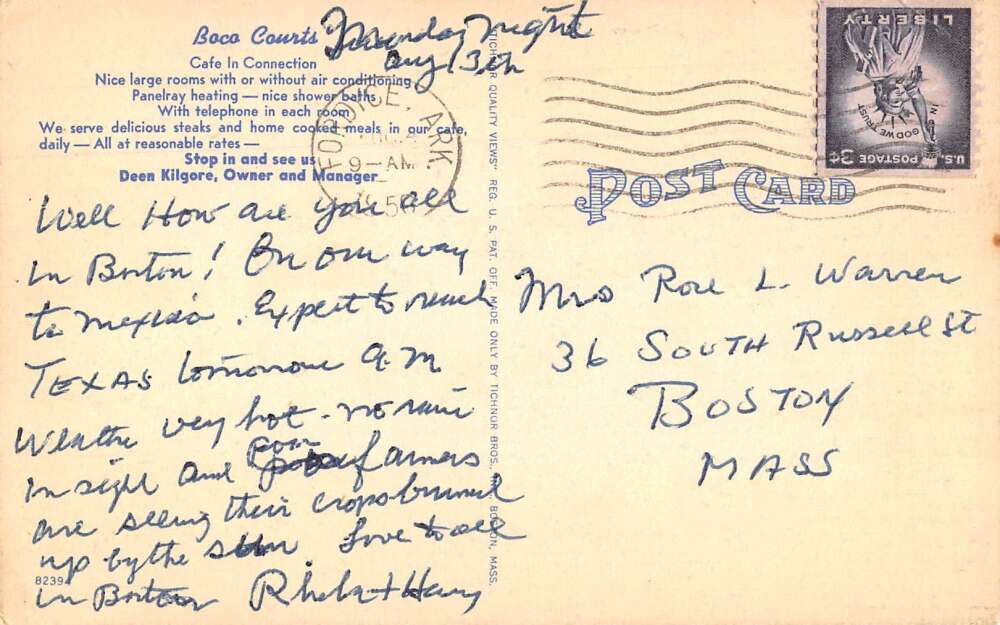 Boco Courts
Cafe In Connection
Nice large rooms with or without air conditioning
Panelray heating — nice shower baths
With telephone in each room
We serve delicious steaks and home cooked meals in our cafe,
daily — All at reasonable rates —
Stop in and see us
Deen Kilgore, Owner and Manager
Monday Night
Aug 13th
FORDYCE, ARK.
9-AM
LIBERTY
IN GOD WE TRUST
U.S. POSTAGE 3¢
POST CARD
Well How are you all
in Boston! On our way
to Mexico. Expect to reach
TEXAS tomorrow A.M
Weather very hot - no rain
in sight and poor farmers
are seeing their crops burned
up by the sun Love to all
in Boston Rheba + Harry
82394
TICHNOR QUALITY VIEWS" REG. U. S. PAT. OFF. MADE ONLY BY TICHNOR BROS., INC., BOSTON, MASS.
Mrs Rose L. Warren
36 SOUTH Russell St
BOSTON
MASS